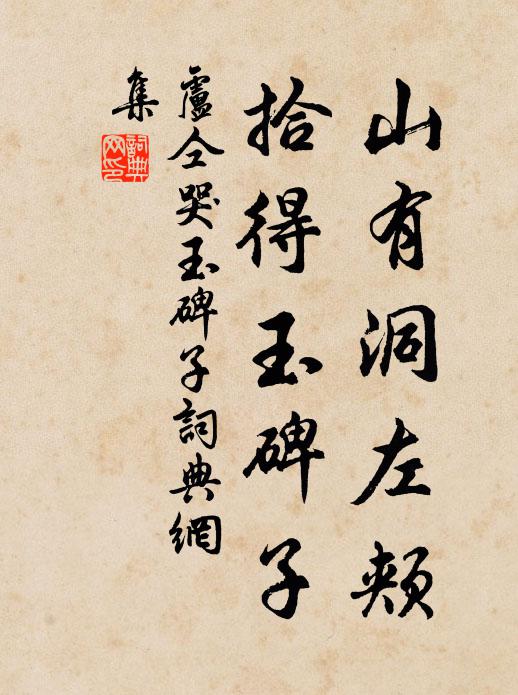 山有洞左頰
拾得玉碑子
盧仝哭玉碑子詞典網
集
詞典
网印